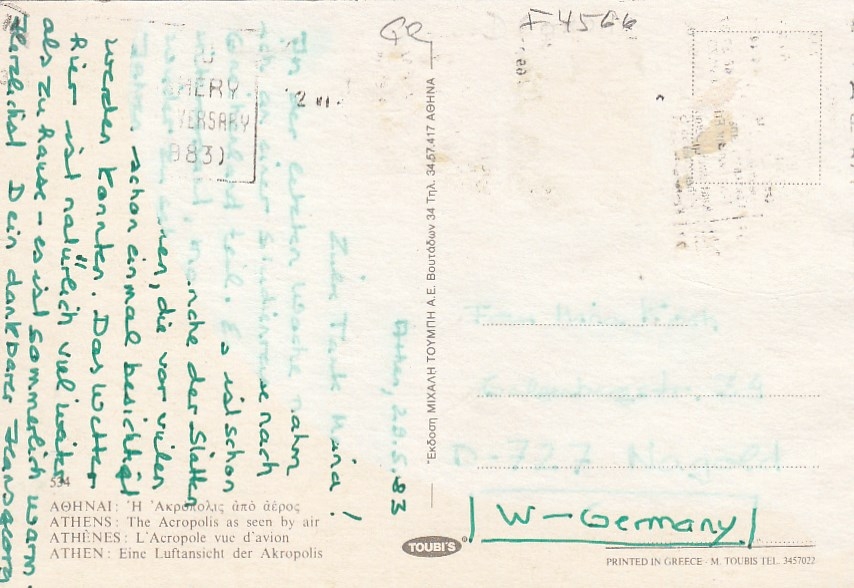 GR
F 4566
2 III.
MERY
VERSARY
983)
Athen, 28.5.83
Liebe Tante Maria!
In der letzten Woche nahm
ich an einer Studienreise nach
Griechenland teil. Es ist schon
manche der Stätten
wieder zu sehen, die vor vielen
Jahren schon einmal besichtigt
werden konnten. Das Wetter
hier ist natürlich viel weiter
als zu Hause - es ist sommerlich warm.
Herzlichst Dein dankbarer Hansgeorg
Ἔκδοση ΜΙΧΑΛΗ ΤΟΥΜΠΗ Α.Ε. Βουτάδων 34 Τηλ. 34.57.417 ΑΘΗΝΑ
Frau
D-727 Nagold
W-Germany
534
ΑΘΗΝΑΙ: Ἡ Ἀκρόπολις ἀπό ἀέρος
ATHENS: The Acropolis as seen by air
ATHÈNES: L'Acropole vue d'avion
ATHEN: Eine Luftansicht der Akropolis
TOUBI'S
PRINTED IN GREECE - M. TOUBIS TEL. 3457022